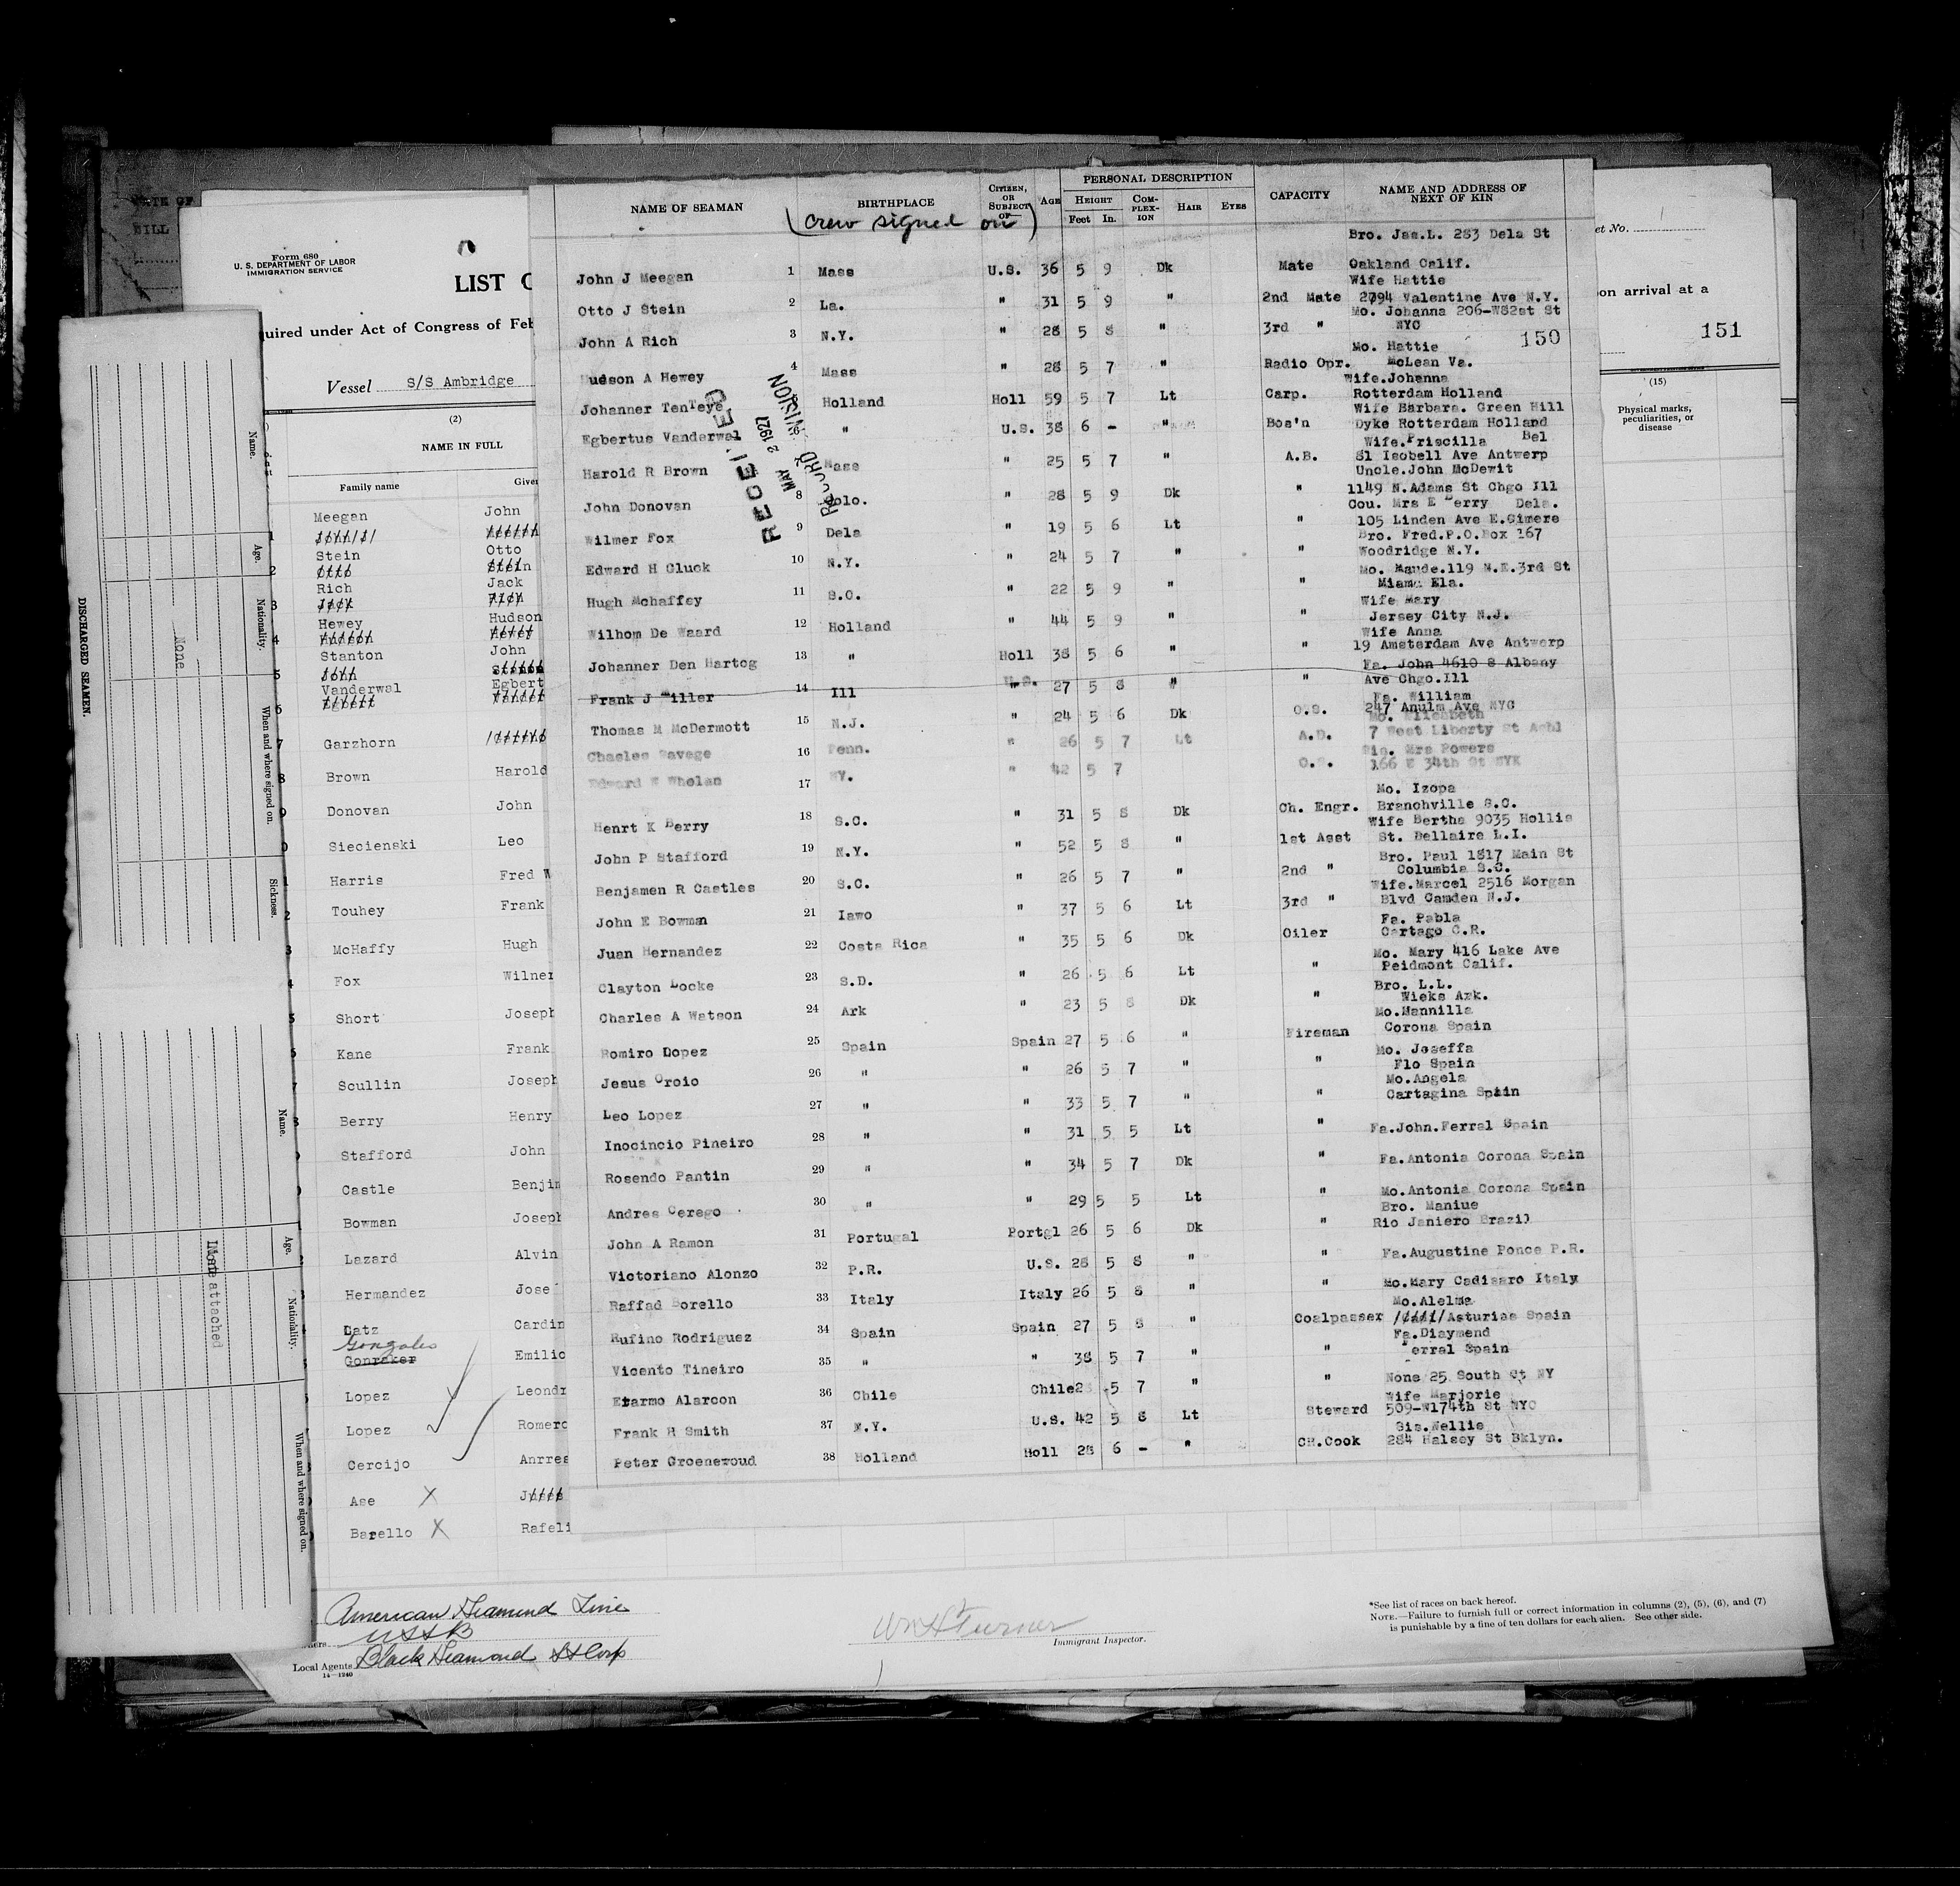 Form 680
U. S. DEPARTMENT OF LABOR
IMMIGRATION SERVICE
LIST
quired under Act of Congress of Feb
Vessel S/S Ambridge
(2)
NAME IN FULL
Family name Given
Meegan John
Stein Otto
Rich Jack
Hewey Hudson
Stanton John
Vanderwal Egbert
7 Garzhorn
8 Brown Harold
Donovan John
Siecienski Leo
Harris Fred W
Touhey Frank
McHaffy Hugh
Fox Wilner
Short Joseph
Kane Frank
Scullin Joseph
Berry Henry
Stafford John
Castle Benjin
Bowman Joseph
Lazard Alvin
Hermandez Jose
Datz Cardin
Gonzales
Gonraker Emilio
Lopez Leondr
Lopez Romero
Cercijo Anrres
Ase X
Barello X Rafeli
American Diamond Line
USSB
Local Agents Black Diamond SS Corp
14—1240
Wm H Turner
Immigrant Inspector.
*See list of races on back hereof.
NOTE.—Failure to furnish full or correct information in columns (2), (5), (6), and (7)
is punishable by a fine of ten dollars for each alien. See other side.
DISCHARGED SEAMEN.
Name.
Age.
Nationality.
When and where signed on.
Sickness.
None
Name.
Age.
Nationality.
When and where signed on.
attached
et No.
on arrival at a
151
(15)
Physical marks,
peculiarities, or
disease
NAME OF SEAMAN BIRTHPLACE CITIZEN, OR SUBJECT OF AGE PERSONAL DESCRIPTION CAPACITY NAME AND ADDRESS OF NEXT OF KIN
HEIGHT Feet In. COMPLEXION HAIR EYES
(crew signed on)
150
RECEIVED
MAY 2 1927
RECORD DIVISION
Bro. Jas.L. 283 Dela St
John J Meegan 1 Mass U.S. 36 5 9 Dk Mate Oakland Calif.
Wife Hattie
Otto J Stein 2 La. " 31 5 9 " 2nd Mate 2794 Valentine Ave N.Y.
Mo. Johanna 206-W82st St
John A Rich 3 N.Y. " 28 5 8 " 3rd " NYC
Mo. Hattie
Hudson A Hewey 4 Mass " 28 5 7 " Radio Opr. McLean Va.
Wife.Johanna
Johanner TenTeye Holland Holl 59 5 7 Lt Carp. Rotterdam Holland
Wife Barbara. Green Hill
Egbertus Vanderwal 6 " U.S. 38 6 - " Bos'n Dyke Rotterdam Holland
Wife.Priscilla Bel
Harold R Brown Mass " 25 5 7 " A.B. 81 Isobell Ave Antwerp
Uncle.John McDewit
John Donovan 8 Colo. " 28 5 9 Dk " 1149 N.Adams St Chgo Ill
Cou. Mrs E Berry Dela.
Wilmer Fox 9 Dela " 19 5 6 Lt " 105 Linden Ave E.Cimere
Bro. Fred.P.O.Box 167
Edward H Cluck 10 N.Y. " 24 5 7 " " Woodridge N.Y.
Mo. Maude.119 N.E.3rd St
Hugh Mchaffey 11 S.C. " 22 5 9 " " Miama Ela.
Wife Mary
Wilhom De Waard 12 Holland " 44 5 9 " " Jersey City N.J.
Wife Anna
Johanner Den Hartog 13 " Holl 38 5 6 " " 19 Amsterdam Ave Antwerp
Fa. John 4610 S Albany
Frank J Miller 14 Ill U.S. 27 5 8 " " Ave Chgo.Ill
Fa. William
Thomas M McDermott 15 N.J. " 24 5 6 Dk O.S. 247 Anulm Ave NYC
Mo. Elizabeth
Chasles Savege 16 Penn. " 26 5 7 Lt A.D. 7 West Liberty St
Sis. Mrs Powers
Edward W Whelan 17 NY. " 42 5 7 O.S. 166 E 34th St NYK
Mo. Izopa
Henrt K Berry 18 S.C. " 31 5 8 Dk Ch. Engr. Branchville S.C.
Wife Bertha 9035 Hollis
John P Stafford 19 N.Y. " 52 5 8 " 1st Asst St. Bellaire L.I.
Bro. Paul 1817 Main St
Benjamen R Castles 20 S.C. " 26 5 7 " 2nd " Columbia S.C.
Wife.Marcel 2516 Morgan
John E Bowman 21 Iawo " 37 5 6 Lt 3rd " Blvd Camden N.J.
Fa. Pabla
Juan Hernandez 22 Costa Rica " 35 5 6 Dk Oiler Cartago C.R.
Mo. Mary 416 Lake Ave
Clayton Locke 23 S.D. " 26 5 6 Lt " Peidmont Calif.
Bro. L.L.
Charles A Watson 24 Ark " 23 5 8 Dk " Wieks Ark.
Mo.Mannilla
Romiro Dopez 25 Spain Spain 27 5 6 " Fireman Corona Spain
Mo. Joseffa
Jesus Oroio 26 " " 26 5 7 " " Flo Spain
Mo.Angela
Leo Lopez 27 " " 33 5 7 " " Cartagina Spain
Inocincio Pineiro 28 " " 31 5 5 Lt " Fa.John.Ferral Spain
Rosendo Pantin 29 " " 34 5 7 Dk " Fa.Antonia Corona Spain
Andres Cerego 30 " " 29 5 5 Lt " Mo.Antonia Corona Spain
Bro. Maniue
John A Ramon 31 Portugal Portgl 26 5 6 Dk " Rio Janiero Brazil
Victoriano Alonzo 32 P.R. U.S. 28 5 8 " " Fa.Augustine Ponce P.R.
Raffad Borello 33 Italy Italy 26 5 8 " " Mo.Mary Cadisaro Italy
Mo.Alelma
Rufino Rodriguez 34 Spain Spain 27 5 8 " Coalpasser Asturias Spain
Fa.Diaymend
Vicento Tineiro 35 " " 38 5 7 " " Ferral Spain
Etarmo Alarcon 36 Chile Chile 28 5 7 " " None 25 South St NY
Wife Marjorie
Frank H Smith 37 N.Y. U.S. 42 5 8 Lt Steward 509-W174th St NYC
Sis.Nellie
Peter Groenewoud 38 Holland Holl 28 6 - " CH.Cook 284 Halsey St Bklyn.